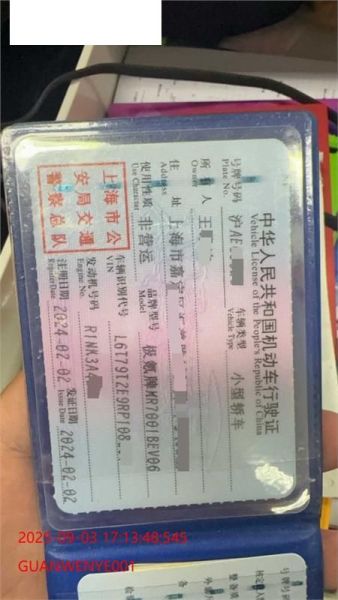 中华人民共和国机动车行驶证
Vehicle License of the People's Republic of China
号牌号码 沪AE
Plate No.
车辆类型 小型轿车
Vehicle Type
所有人 王
Owner
住址 上海市嘉
Address
使用性质 非营运
Use Character
品牌型号 极氪牌MR7001BEV06
Model
上海市公
安局交通
警察总队
车辆识别代号 L6T79T2E9RP108
VIN
发动机号码 R1NK3A4
Engine No.
注册日期 2024-02-02
Register Date
发证日期 2024-02-02
Issue Date
号牌号码
2025-09-03 17:13:48:545
GUANWENYE001